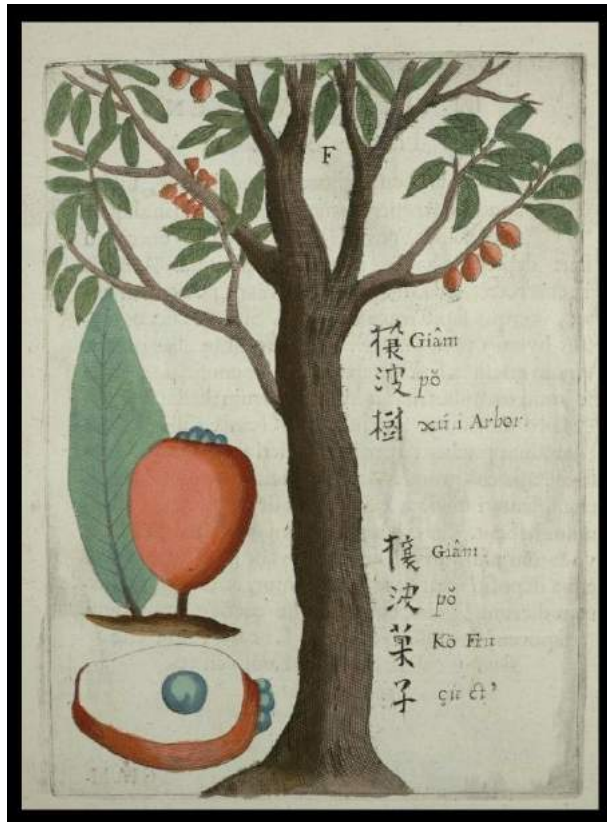 F
Giâm
波 pŏ
樹 xú.i Arbor.
Giâm.
波 pŏ
菓 Kŏ Fru
子 çú ct'